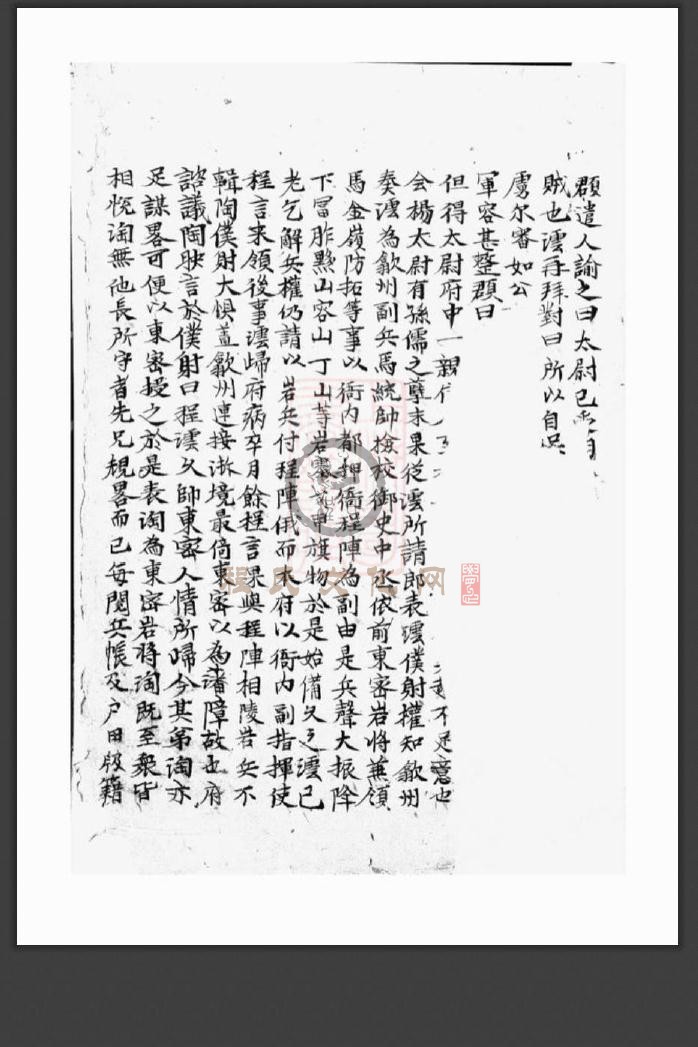 顆遣人諭之曰太尉已
賊也澐再拜對曰所以自
虜尔審如公
軍容甚整顆曰
但得太尉府中一親 不足意也
会楊太尉有孫儒之孽未果從澐所請郎表澐僕射權知歙州
奏澐為歙州副兵馬統帥檢校御史中丞依前東密岩將兼領
馬金嶺防拓等事以衙内都押衙程陣為副由是兵聲大振降
下冒胙黟山容山丁山等岩 旗物於是始備久之澐已
老乞解兵權仍請以岩兵付程陣俄而本府以衙内副指揮使
程言来領後事澐歸府病卒月餘程言果與程陣相陵岩兵不
輯陶僕射大惧蓋歙州連接浙境最倚東密以為藩障故也府
諮議陶聀言於僕射曰程澐久帥東密人情所歸今其弟淘亦
足謀畧可便以東密授之於是表淘為東密岩將淘既至衆皆
相恱淘無他長所守者先兄規畧而已每閱兵帳及户田版籍
程氏文化网